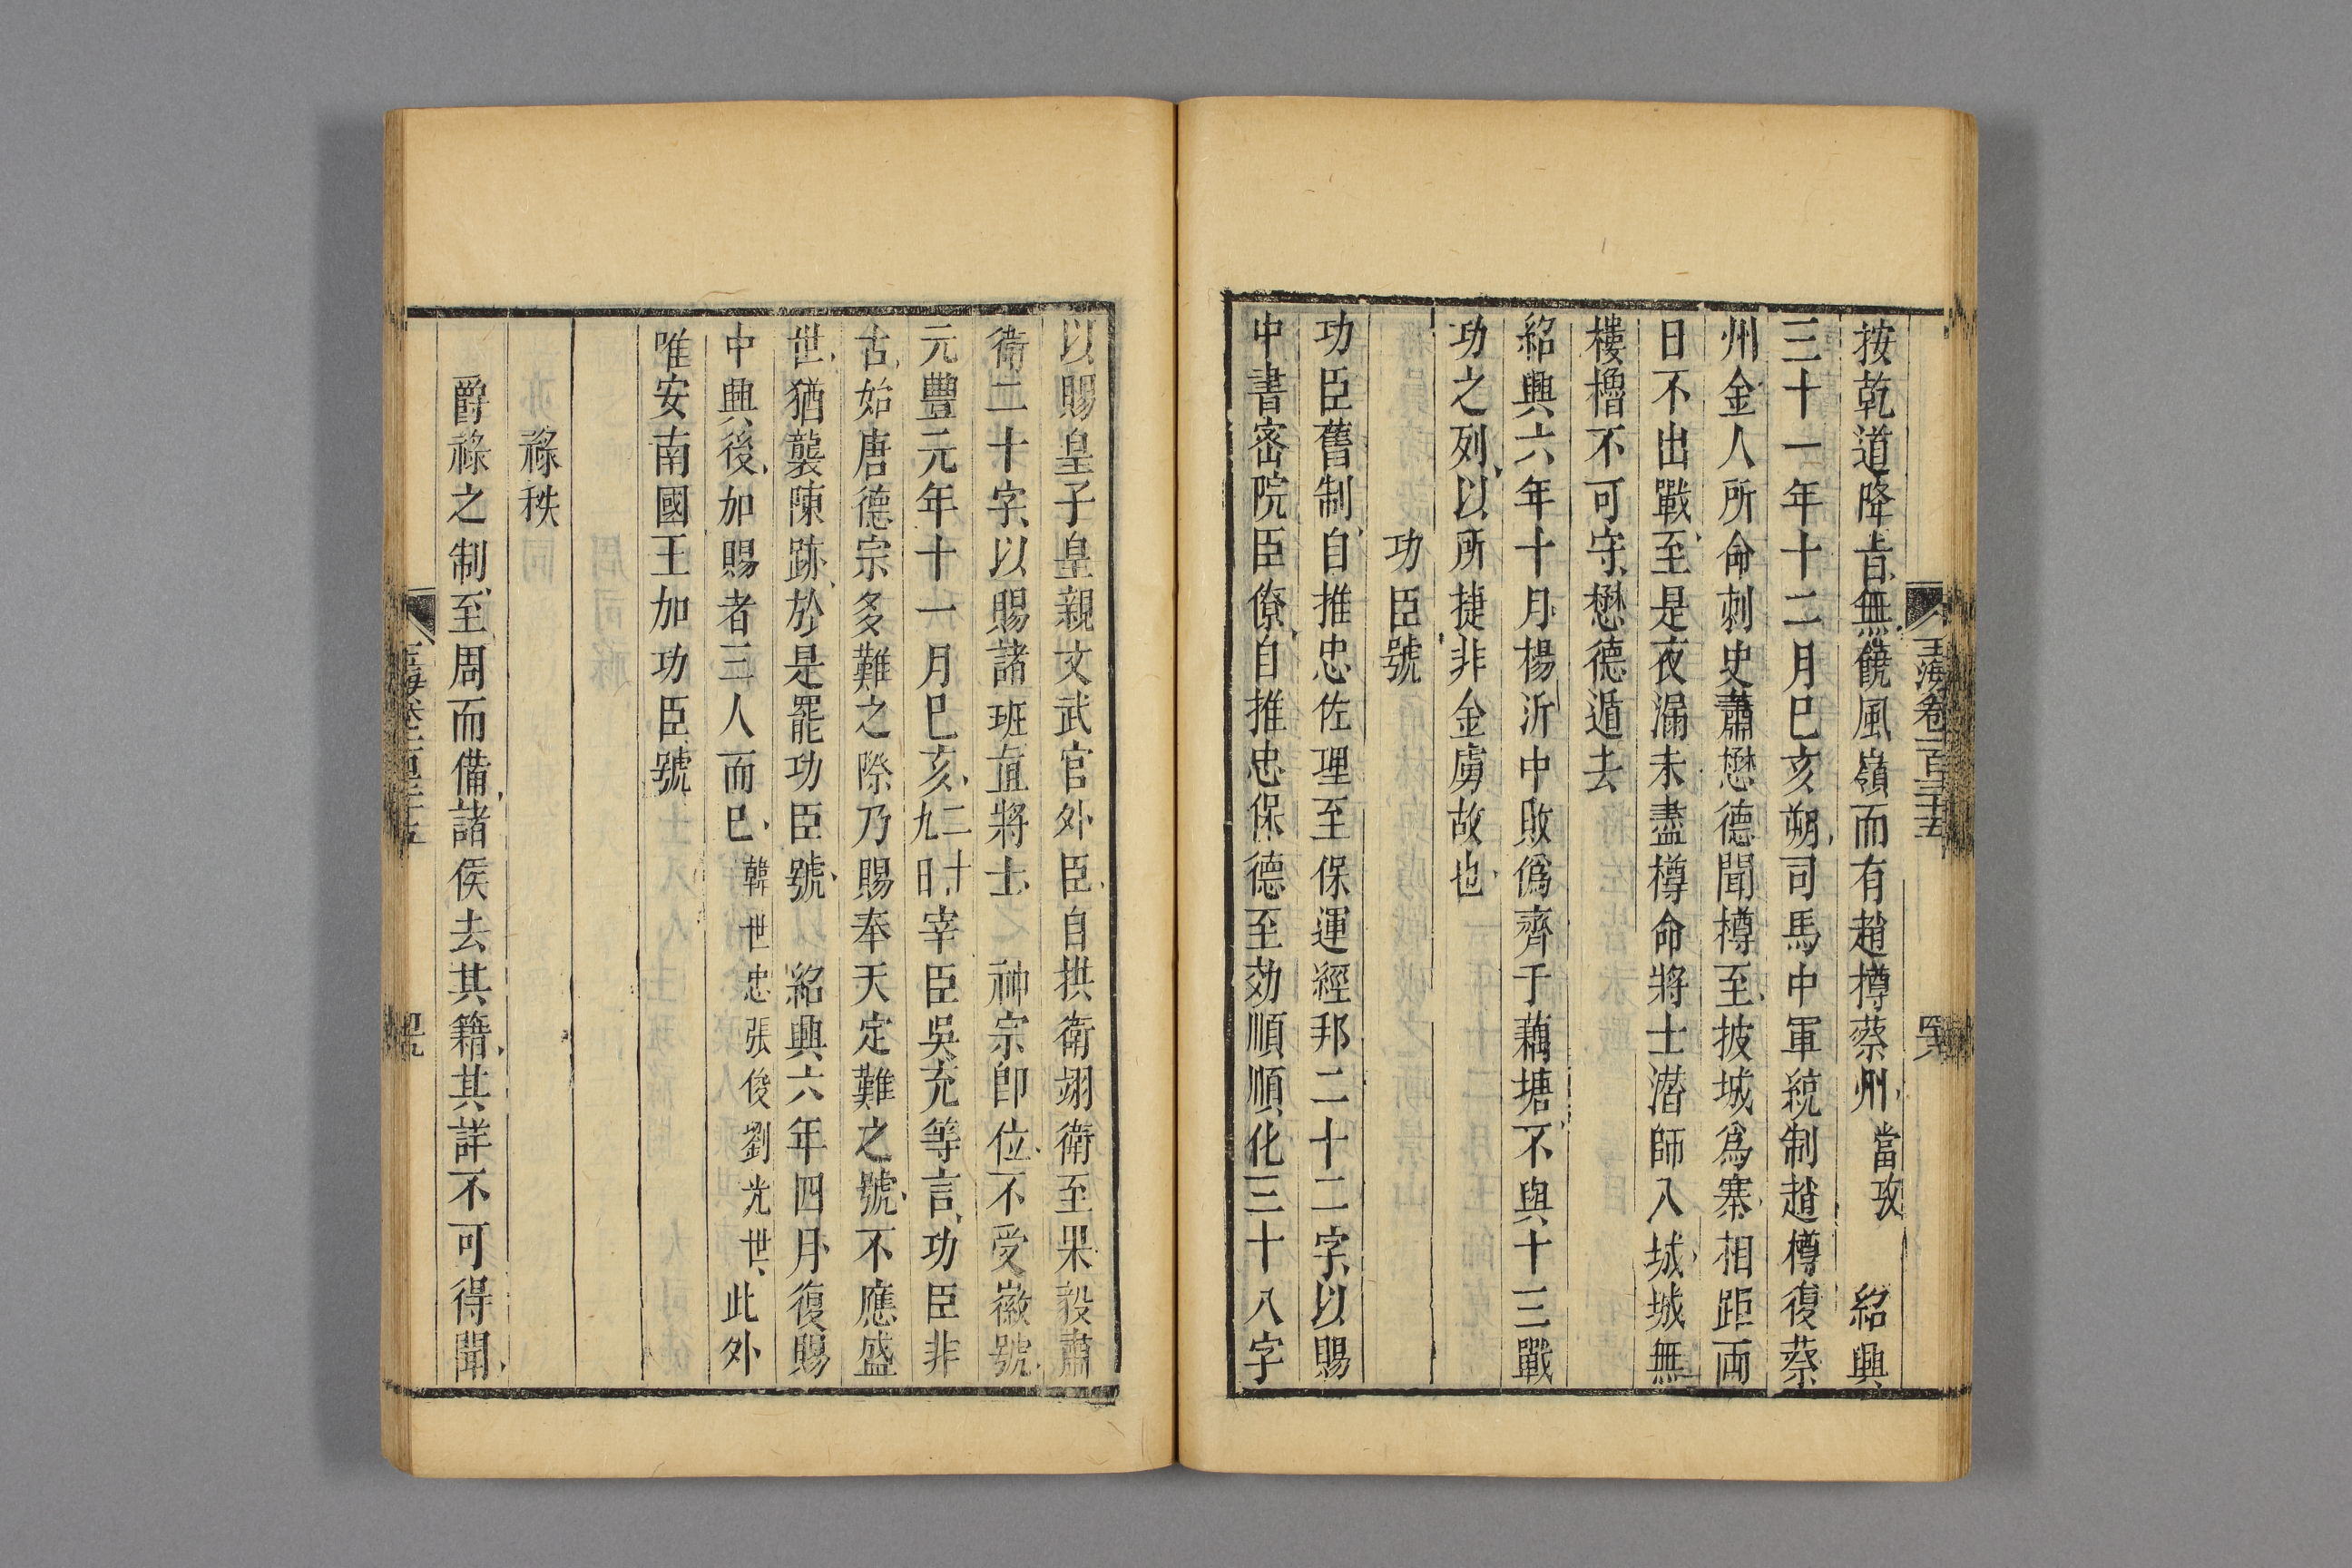 玉海卷一百三十五
按乾道降旨無饒風嶺而有趙樽蔡州當攷 紹興
三十一年十二月巳亥朔司馬中軍統制趙樽復蔡
州金人所命刺史蕭懋德聞樽至披城爲寨相距両
日不出戰至是夜漏未盡樽命將士潛師入城城無
樓櫓不可守懋德遁去
紹興六年十月楊沂中敗僞齊于藕塘不與十三戰
功之列以所捷非金虜故也
功臣號
功臣舊制自推忠佐理至保運經邦二十二字以賜
中書宻院臣僚自推忠保德至効順順化三十八字
以賜皇子皇親文武官外臣自拱衛翊衛至果毅肅
衛二十字以賜諸班直將士 神宗卽位不受徽號
元豐元年十一月巳亥二十九日宰臣吳充等言功臣非
古始唐德宗多難之際乃賜奉天定難之號不應盛
世猶襲陳跡於是罷功臣號 紹興六年四月復賜
中興後加賜者三人而巳韓世忠張俊劉光世此外
唯安南國王加功臣號
祿秩
爵祿之制至周而備諸侯去其籍其詳不可得聞